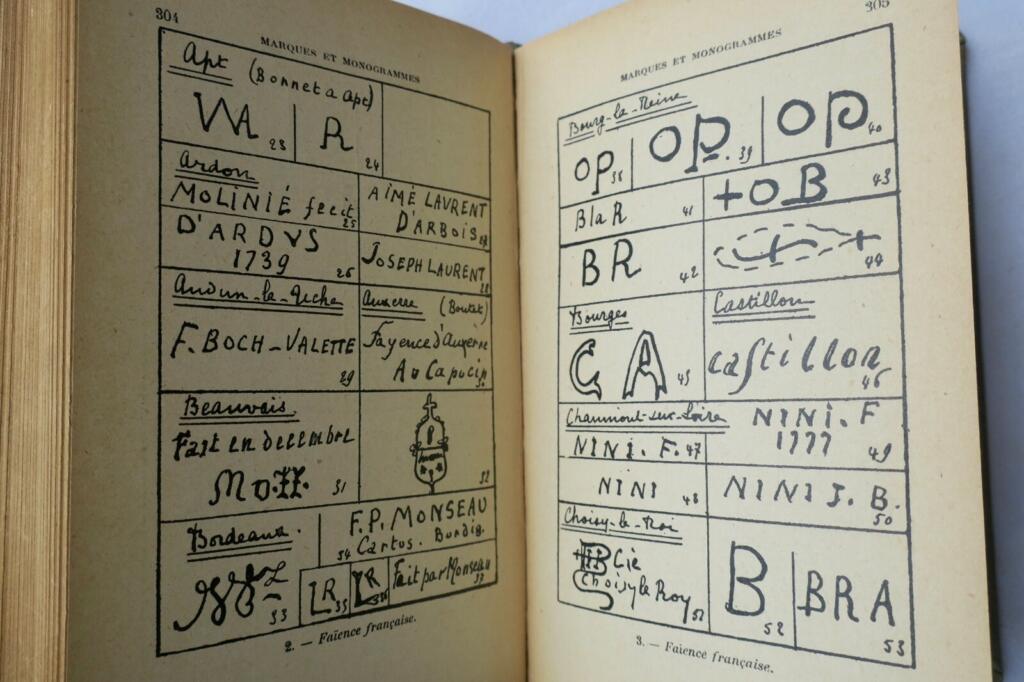 304
MARQUES ET MONOGRAMMES
Apt (Bonnet a Apt)
23
R 24
Ardon
MOLINIÉ fecit 25
AIMÉ LAVRENT
D'ARBOIS 27
D'ARDVS
1739 26
JOSEPH LAURENT 28
Audun-le-Tiche
F. BOCH-VALETTE 29
Auxerre (Boutet)
Fayence d'Auxerre
Au Capucin 30
Beauvais
Fait en decembre
31
32
Bordeaux.
33
F.P. MONSEAU
34 Cartus. Burdig.
LR 35
LR 36
Fait par Monseau 37
2. — Faïence française.
305
MARQUES ET MONOGRAMMES
Bourg-la-Reine
OP 38
OP. 39
OP 40
BlaR 41
+OB 43
BR 42
44
Bourges
C A 45
Castillon
castillon 46
Chaumont-sur-Loire
NINI. F. 47
NINI. F
1777 49
NINI 48
NINI J. B. 50
Choisy-le-Roi
Cie
Choisy le Roy 51
B 52
BRA 53
3. — Faïence française.